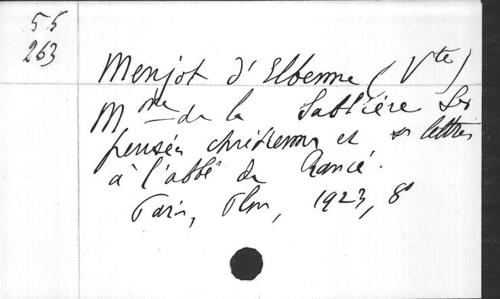 55
263
Menjot d'Elbenne (Vte)
Mme de la Sablière Ses
pensées chrétiennes et ses lettres
à l'abbé de Rancé.
Paris, Plon, 1923, 8°